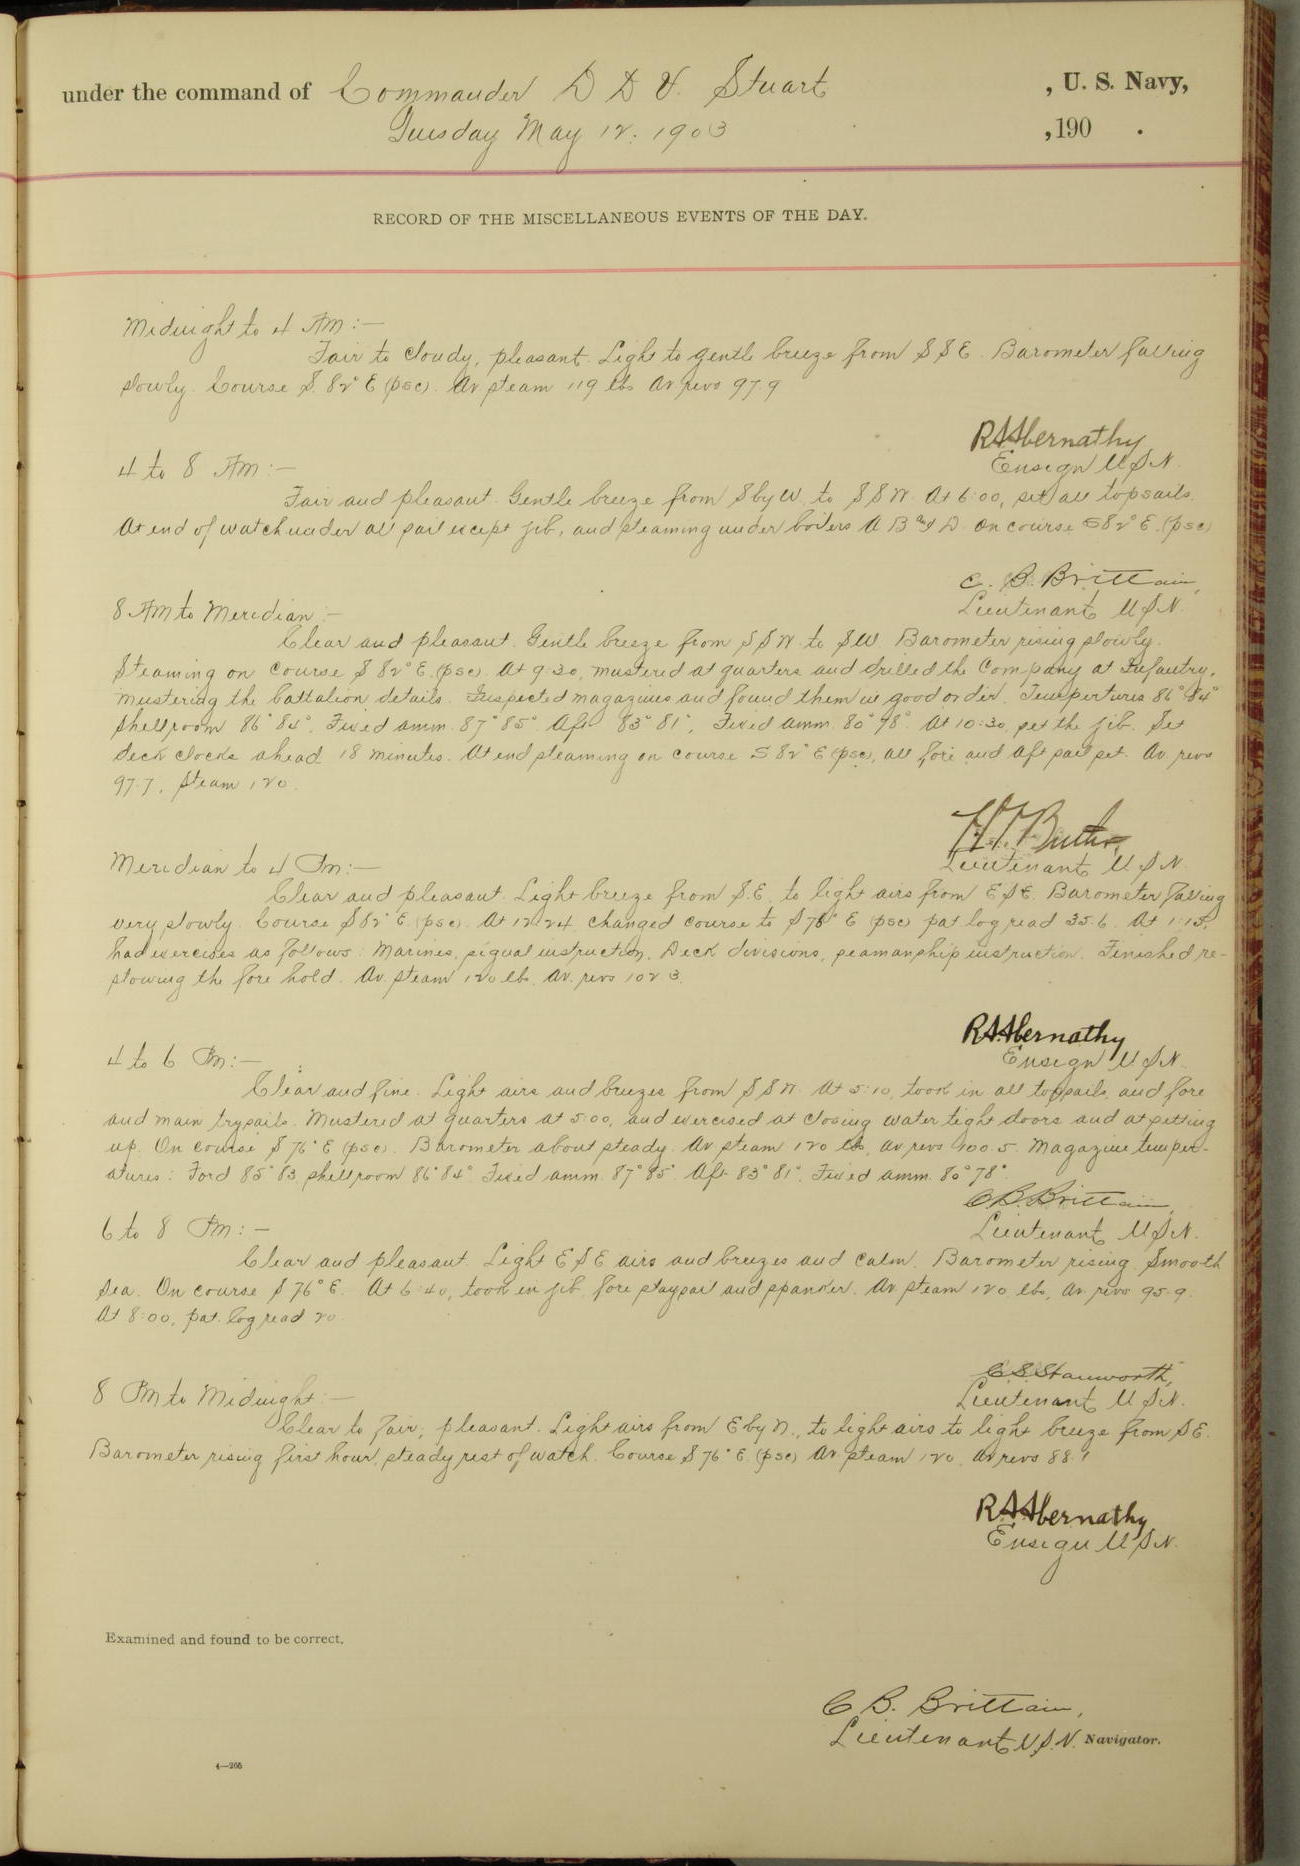 under the command of Commander D D V. Stuart, U. S. Navy,
Tuesday May 12. 1903 , 190 .
RECORD OF THE MISCELLANEOUS EVENTS OF THE DAY.
Midnight to 4 AM:—
Fair to cloudy, pleasant. Light to gentle breeze from S S E. Barometer falling
slowly. Course S. 82° E (psc). Av steam 119 lbs Av revs 97.9
R.A.Abernathy
Ensign U.S.N.
4 to 8 AM:—
Fair and pleasant. Gentle breeze from S by W. to S S W. At 6:00, set all topsails.
At end of watch under all sail except jib, and steaming under boilers A B and D. On course S 82° E. (psc)
C. B. Brittain,
Lieutenant U.S.N.
8 AM to Meridian:—
Clear and pleasant. Gentle breeze from S S W. to S W. Barometer rising slowly.
Steaming on course S 82° E. (psc). At 9:30, mustered at quarters and drilled the Company at Infantry,
mustering the battalion details. Inspected magazines and found them in good order. Tempertures 86° 84°
Shellroom 86° 84°. Fixed amm. 87° 85° Aft 83° 81°, Fixed amm. 80° 78°. At 10:30 set the jib. Set
deck clocks ahead 18 minutes. At end steaming on course S 82° E (psc), all fore and aft sail set. Av. revs
97.7, steam 120.
Lieutenant U.S.N.
Meridian to 4 PM:—
Clear and pleasant. Light breeze from S.E. to light airs from E S E. Barometer falling
very slowly. Course S 82° E. (psc). At 12:24 changed course to S 76° E (psc) pat log read 35.6. At 1:15,
had exercises as follows: Marines, signal instruction, Deck divisions, seamanship instruction. Finished re-
stowing the fore hold. Av. steam 120 lbs. Av. revs 102.3.
R.A.Abernathy
Ensign U.S.N.
4 to 6 PM:—
Clear and fine. Light airs and breezes from S S W. At 5:10, took in all topsails, and fore
and main trysails. Mustered at quarters at 5:00, and exercised at closing water tight doors and at setting
up. On course S 76° E (psc). Barometer about steady. Av steam 120 lbs, av revs 100.5. Magazine temper-
atures: Ford 85° 83, shellroom 86° 84°. Fixed amm. 87° 85° Aft 83° 81°. Fixed amm. 80° 78°.
C. B. Brittain,
Lieutenant U.S.N.
6 to 8 PM:—
Clear and pleasant. Light E S E airs and breezes and calm. Barometer rising. Smooth
sea. On course S 76° E. At 6:40, took in jib, fore staysail and spanker. Av steam 120 lbs, Av. revs 95.9.
At 8:00, pat. log read 20.
C.S.Stanworth,
Lieutenant U.S.N.
8 PM to Midnight:—
Clear to fair, pleasant. Light airs from E by N., to light airs to light breeze from S E.
Barometer rising first hour, steady rest of watch. Course S 76° E. (psc) Av steam 120, Av revs 88.1
R.A.Abernathy
Ensign U.S.N.
Examined and found to be correct.
C. B. Brittain,
Lieutenant U.S.N. Navigator.
4—205